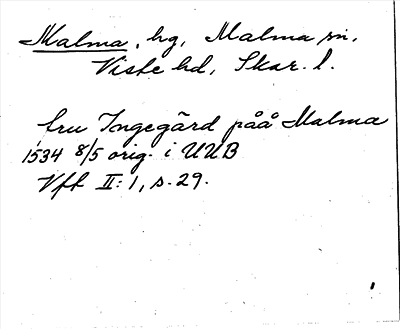 Malma, hg, Malma sn,
Viste hd, Skar. l.
fru Ingegärd påå Malma
1534 8/5 orig. i UUB
Vft II: 1, s. 29.